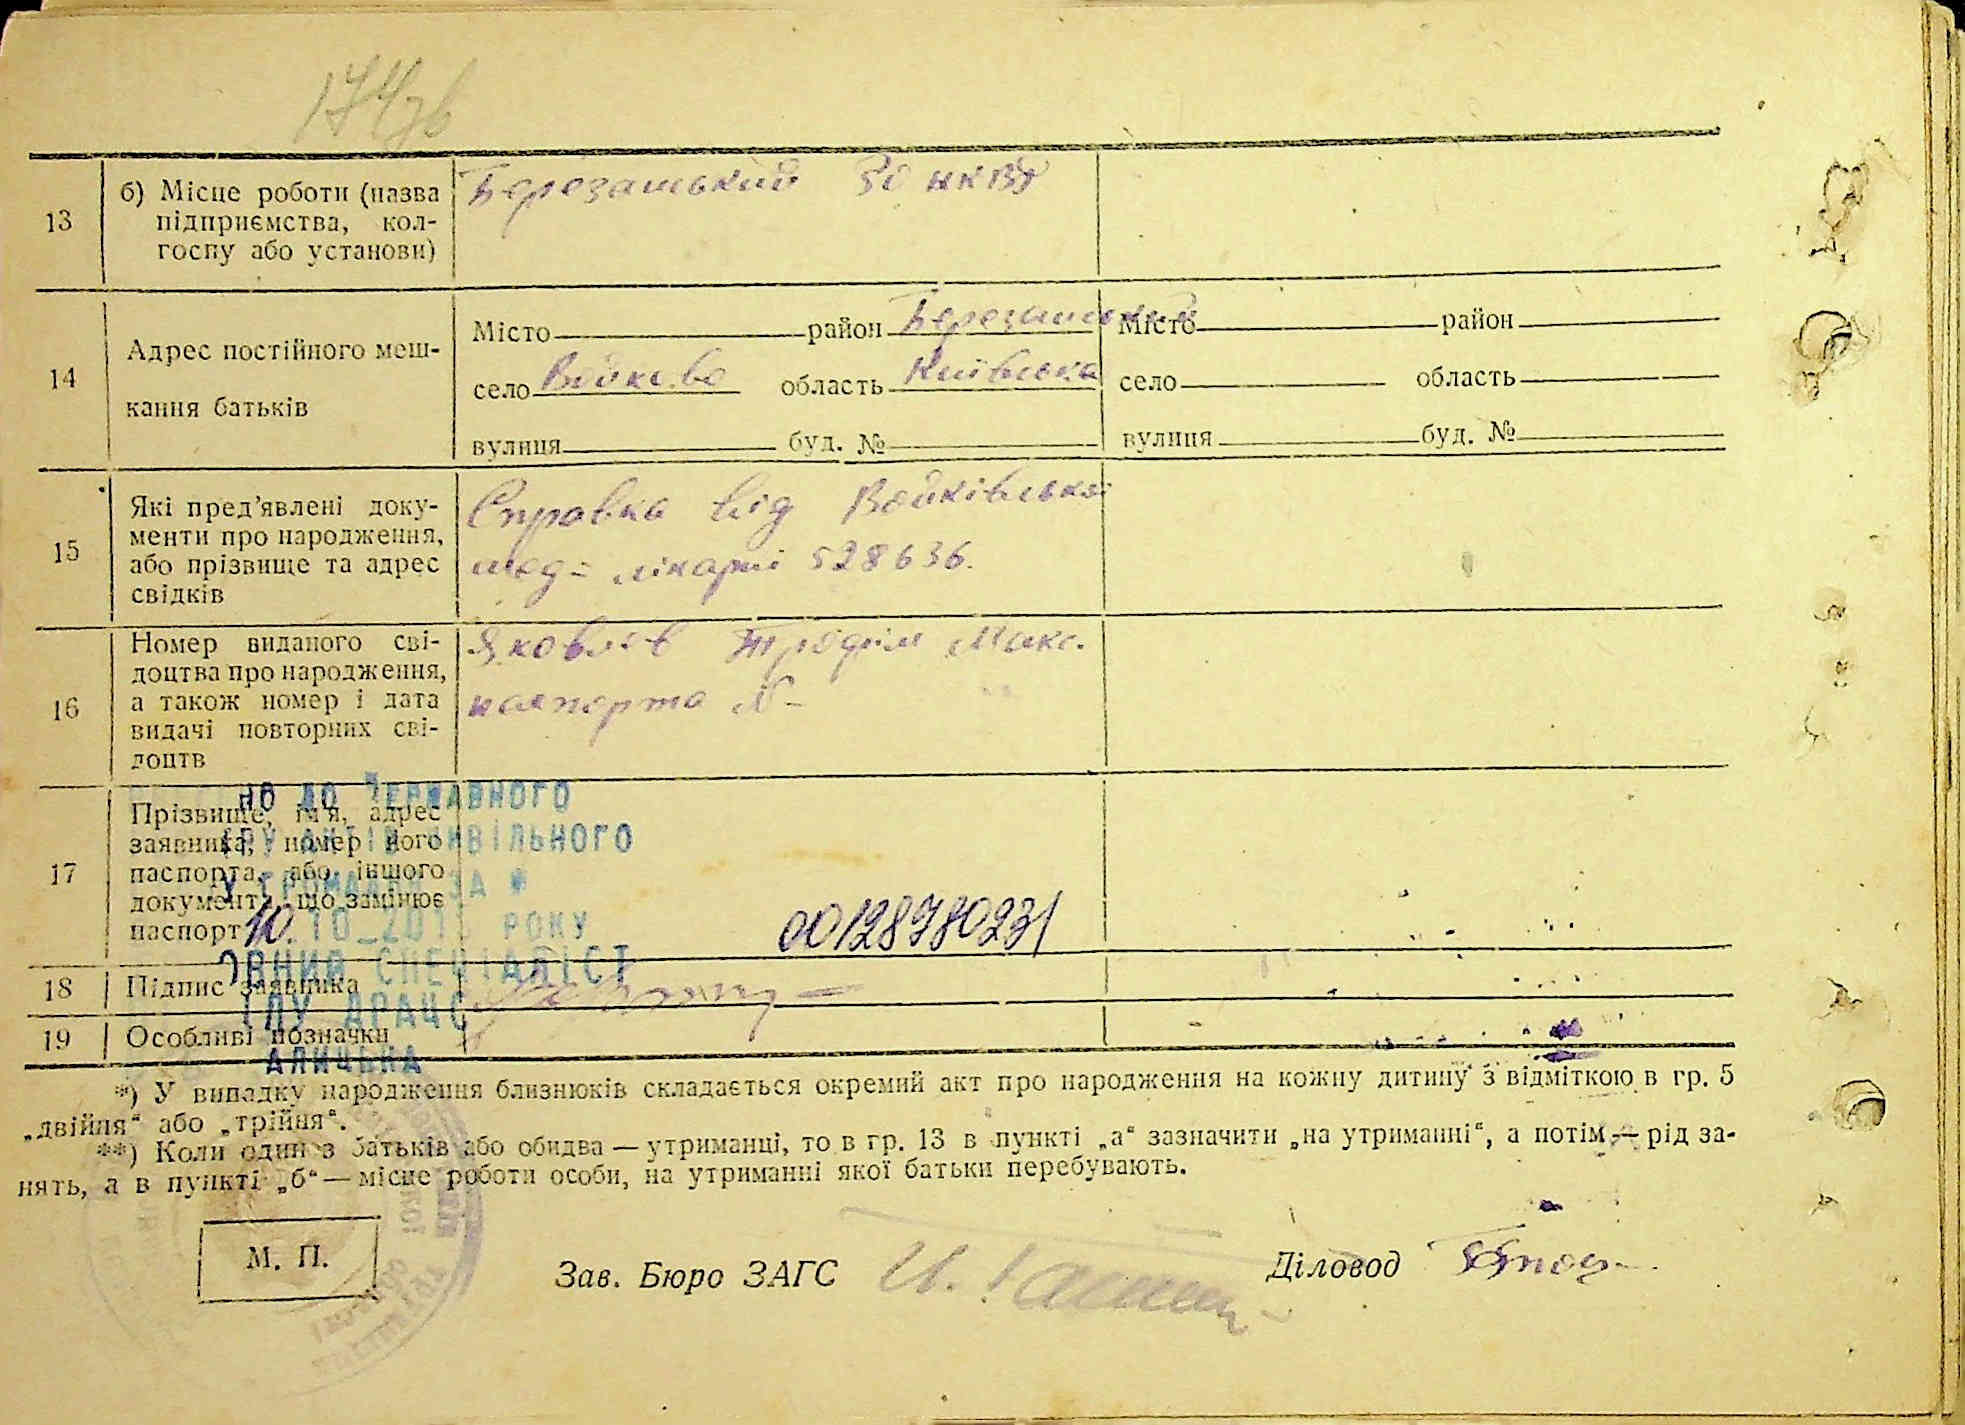 174зв
13
б) Місце роботи (назва
підприємства, кол-
госпу або установи)
Березанський РО НКВД
14
Адрес постійного меш-
кання батьків
Місто район Березанський
село Войково область Київська
вулиця буд. №
Місто район
село область
вулиця буд. №
15
Які пред'явлені доку-
менти про народження,
або прізвище та адрес
свідків
Справка від Войківської
мед-лікарні 528636.
16
Номер виданого сві-
доцтва про народження,
а також номер і дата
видачі повторних сві-
доцтв
Яковлєв Трофим Макс.
паспорта №-
17
Прізвище, ім'я, адрес
заявника, номер його
паспорта, або іншого
документа, що замінює
паспорт
НО ДО ДЕРЖАВНОГО
АКТІВ ЦИВІЛЬНОГО
ГРОМАДЯН ЗА *
10.10_201 РОКУ
ОВНИЙ СПЕЦІАЛІСТ
ДРАЦС
00128980231
18
Підпис заявника
19
Особливі позначки
*) У випадку народження близнюків складається окремий акт про народження на кожну дитину з відміткою в гр. 5
„двійня“ або „трійня“.
**) Коли один з батьків або обидва — утриманці, то в гр. 13 в пункті „а“ зазначити „на утриманні“, а потім — рід за-
нять, а в пункті „б“ — місце роботи особи, на утриманні якої батьки перебувають.
М. П.
Зав. Бюро ЗАГС
Діловод